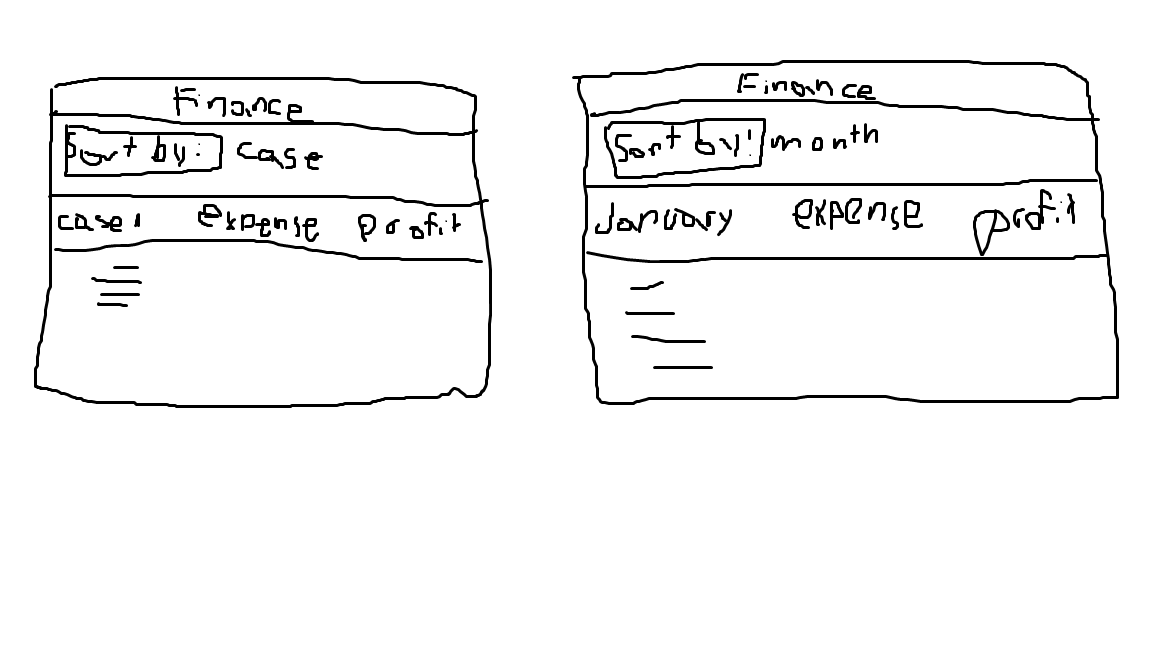 Finance
Sort by: case
case 1 expense profit
Finance
Sort by: month
January expense profit